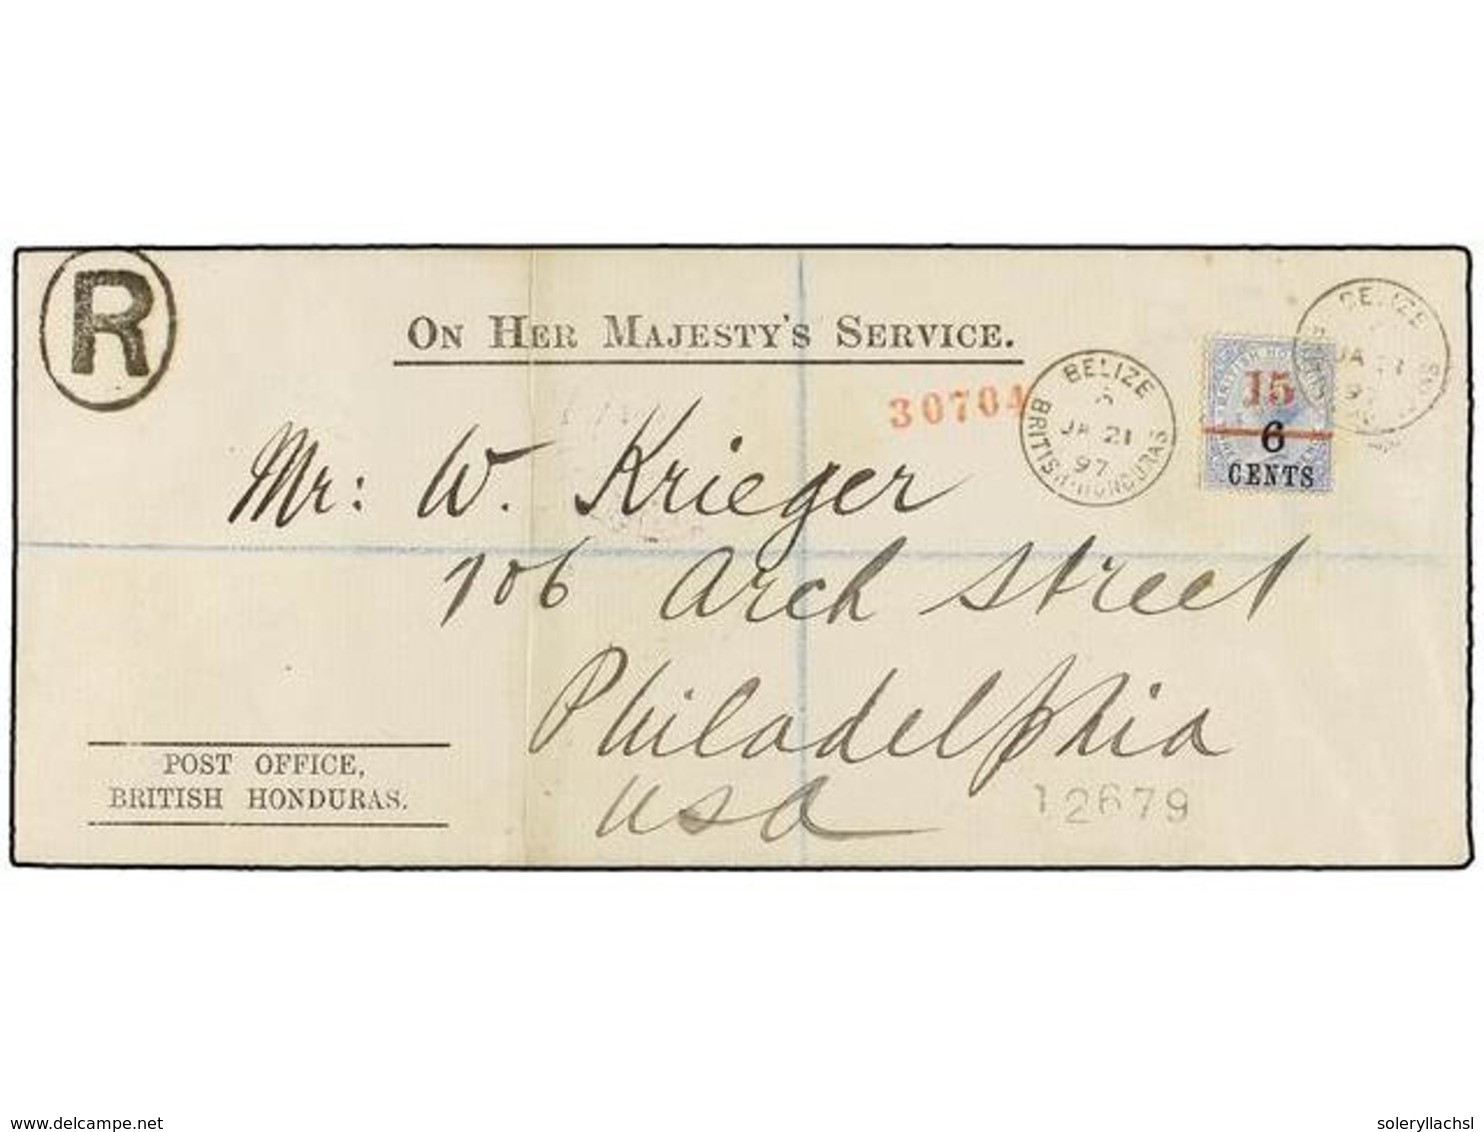 R
ON HER MAJESTY'S SERVICE.
30704
BELIZE
JA 21
97
BRITISH HONDURAS
BELIZE
JA 21
97
15
6
CENTS
Mr: W. Krieger
706 Arch Street
Philadelphia
USA
12679
POST OFFICE,
BRITISH HONDURAS.
delcampe.net
soleryllachsl